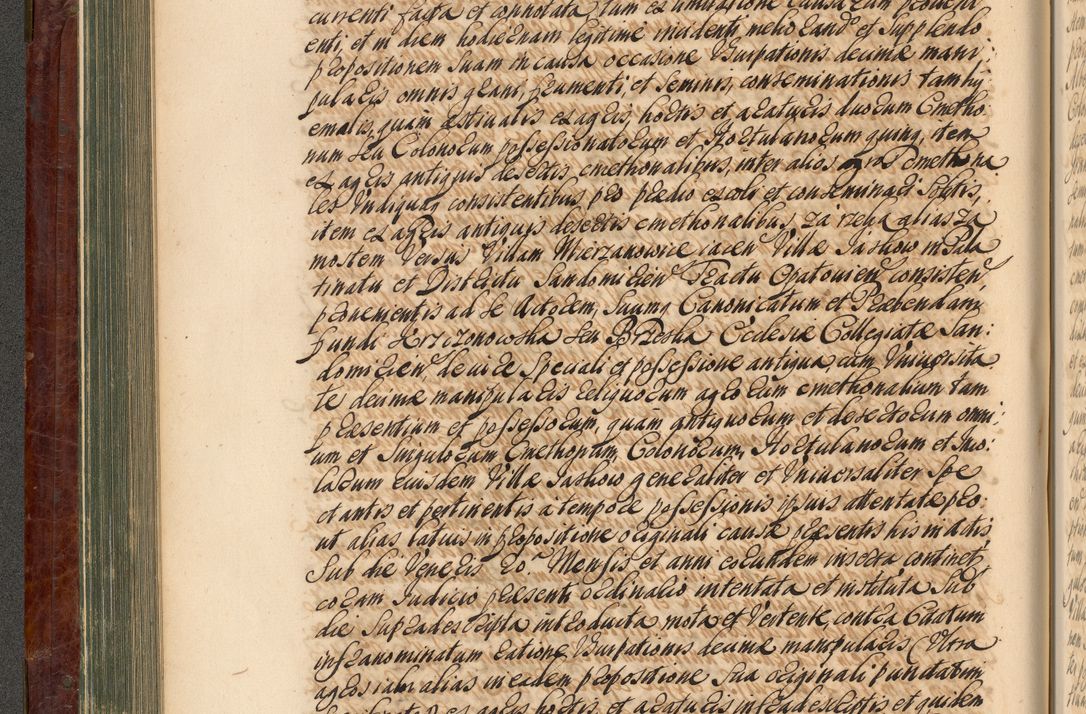 currenti facta et connotata, tum ex limitatione Causa cum
enti, et in diem hodiernam legitime incidenti, meliorando et Supplendo
Propositionem Suam in causa occasione Usurpationis decimæ mani
pularis omnis grani, frumenti, et Seminis, conseminationis tam hy
emalis, quam æstivalis ex agris, hortis et araturis duorum Cmetho
num Seu Colonorum possessionatorum et Hortulanorum quinque, item
ex agris antiquis desertis cmethonalibus, inter alios agros Cmethona
les undiquaque consistentibus, pro prædio excoli et conseminari Solitis,
item ex agris antiquis desertis cmethonalibus, za rzeką alias Za
mostem Versus Villam Mierzanowice jacen Villæ Jasħow in Pala
tinatu et Districtu Sandomirien Tractu Opatovien consisten,
provenientis ad se Actorem, Suumque Canonicatum et Præbendam
fundi Krzczonowska Seu Brzeska Ecclesiæ Collegiatæ San:
domirien de jure Speciali et possessione antiqua, cum Universita
te decimæ manipularis reliquorum agrorum cmethonalium tam
præsentium et possessorum, quam antiquorum et desertorum omni:
um et Singulorum Cmethonum, Colonorum, Hortulanorum et Inco:
larum ejusdem Villæ Jashow generaliter et Universaliter Spe
ctantis et pertinentis a tempore possessionis ipsius attentatæ pro:
ut alias latius in propositione originali causæ præsentis his in actis
Sub die Veneris 20. Mensis et anni eorundem inserta continet,
coram Judicio præsenti ordinario intentata et instituta Sub
die Supradescripta introducta mota et Vertente, contra Citatum
infranominatum ratione Usurpationis decimæ manipularis (Ultra
agros jam alias in eadem propositione Sua originali punctatim
agris hortis, et araturis infradescriptis et quidem